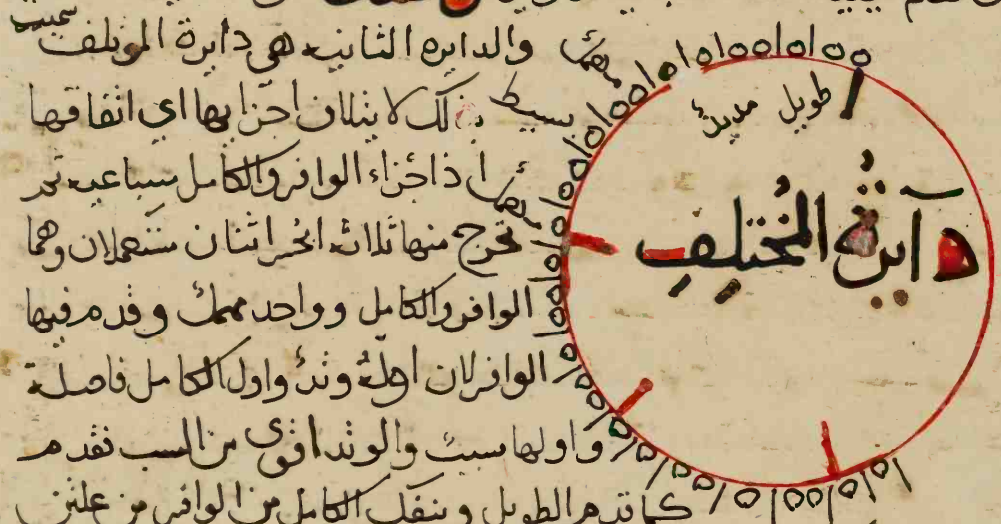 والدايره الثانيه هي دايرة الموتلف سميت
بذلك لايتلاف اجزايها اي اتفاقها
اذ اجزاء الوافر والكامل سباعيه
تخرج منها ثلاث ابحر اثنان مستعملان وهما
الوافر والكامل وواحد مهمل وقدم فيها
الوافر لان اوله وتد واول الكامل فاصلة
واولها سبب والوتد اقوي من السبب تقدم
كما قدم الطويل وينفك الكامل من الوافر من علتن
طويل مديد
بسيط
مهمل
مهمل
دايرة المختلف